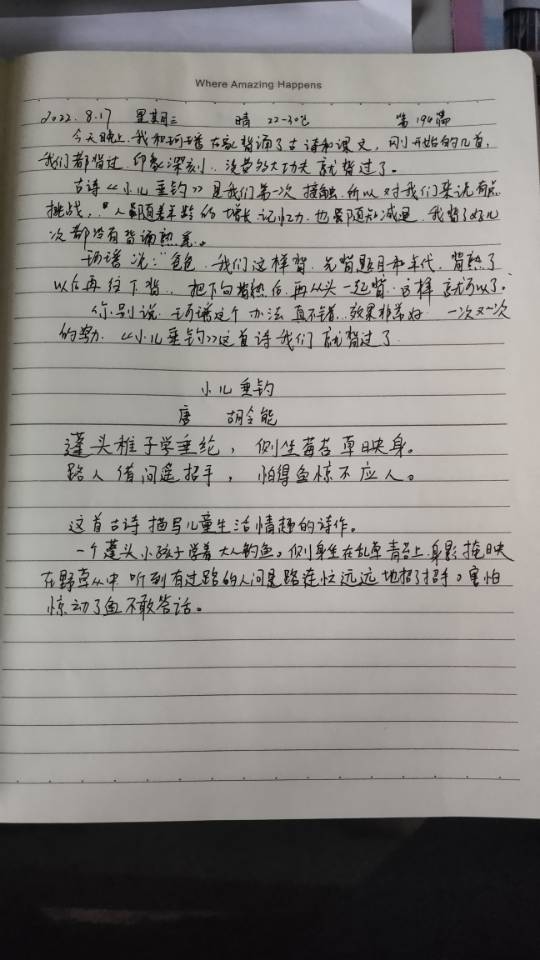 Where Amazing Happens
2022.8.17 星期三 晴 22-30℃ 第194篇
今天晚上我和珂璠在家背诵了古诗和课文，刚开始的几首，
我们都背过，印象深刻，没费多大功夫就背过了。
古诗《小儿垂钓》是我们第一次接触，所以对我们来说有点
挑战，人都随着年龄的增长记忆力也都随之减退，我背了好几
次都没有背诵熟悉。
珂璠说："爸爸，我们这样背，先背题目和年代，背熟了
以后再往下背，把下句背熟后，再从头一起背，这样就可以了。
你别说，珂璠这个办法真不错，效果非常好，一次又一次
的努力，《小儿垂钓》这首诗我们就背过了
小儿垂钓
唐 胡令能
蓬头稚子学垂纶，侧坐莓苔草映身。
路人借问遥招手，怕得鱼惊不应人。
这首古诗描写儿童生活情趣的诗作。
一个蓬头小孩子学着大人钓鱼，侧身坐在乱草青苔上，身影掩映
在野草丛中，听到有过路的人问是路连忙远远地招了招手，害怕
惊动了鱼不敢答话。